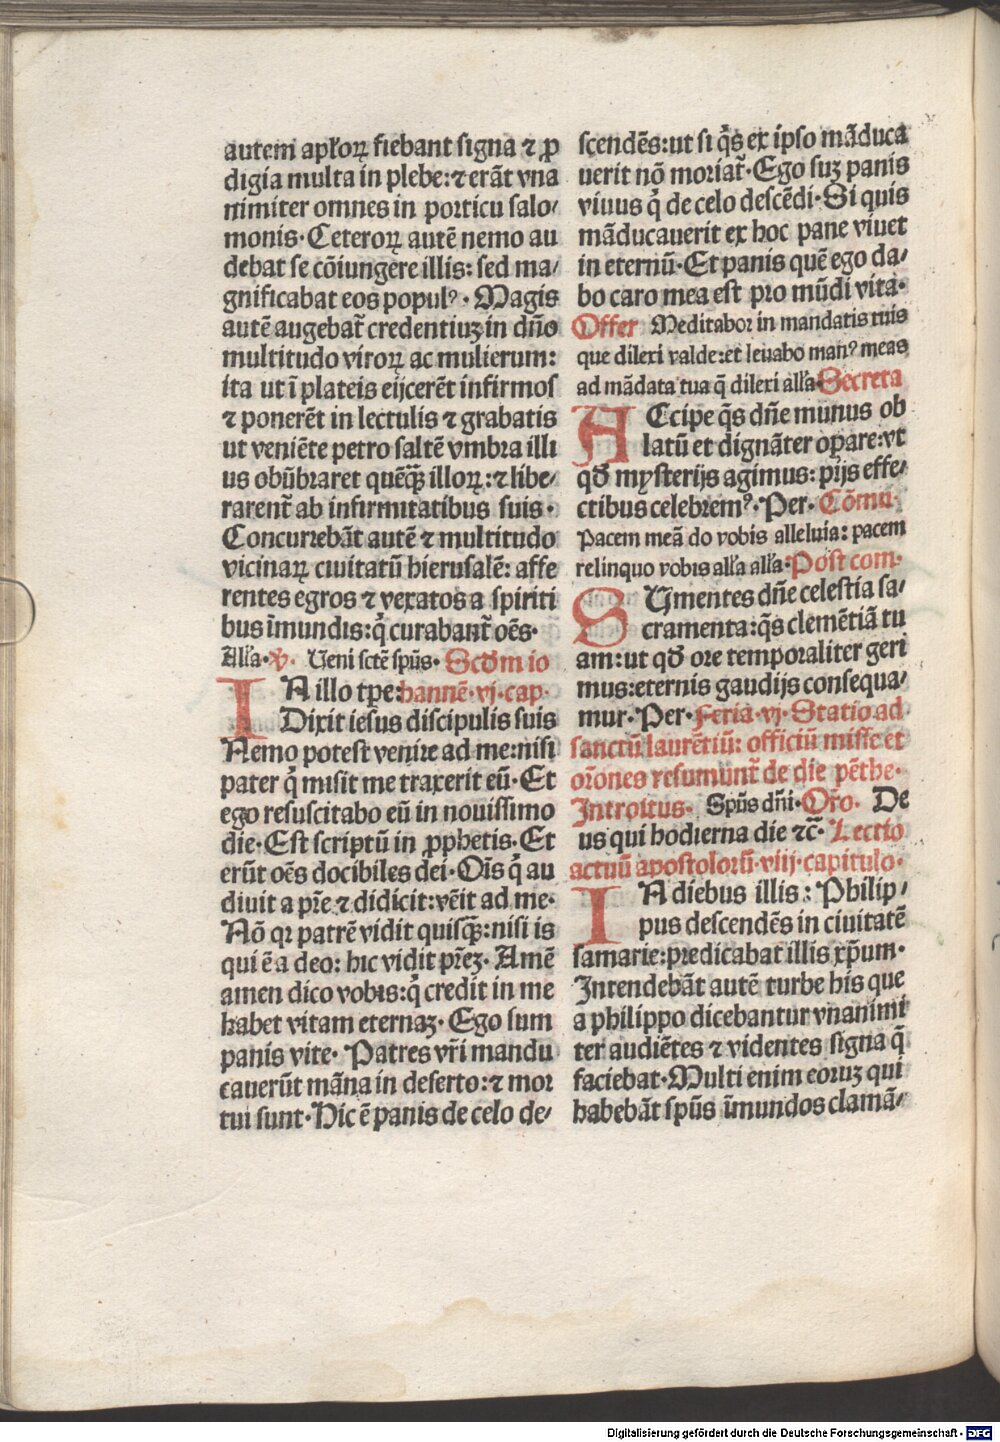 autem apl̃oꝝ fiebant signa ⁊ ꝓ
digia multa in plebe: ⁊ erãt vna
nimiter omnes in porticu salo/
monis. Ceteroꝝ autẽ nemo au
debat se cõiungere illis: sed ma/
gnificabat eos popul⁹. Magis
autẽ augebat̃ credentiuʒ in dño
multitudo viroꝝ ac mulierum:
ita ut ĩ plateis eijcerẽt infirmos
⁊ ponerẽt in lectulis ⁊ grabatis
ut veniẽte petro saltẽ vmbra illi
us obũbraret quẽqꝫ̃ illoꝝ: ⁊ libe/
rarent̃ ab infirmitatibus suis.
Concurrebãt autẽ ⁊ multitudo
vicinaꝝ ciuitatũ hierusalẽ: affe
rentes egros ⁊ vexatos a spiriti
bus ĩmundis: q̇ curabant̃ oẽs.
All̃a. ℣. Ueni sctẽ spũs. Scd̃m io
IN illo tꝑe: hannẽ. vj. cap.
Dixit iesus discipulis suis
Nemo potest venire ad me: nisi
pater q̇ misit me traxerit eũ. Et
ego resuscitabo eũ in nouissimo
die. Est scriptũ in ꝓphetis. Et
erũt oẽs docibiles dei. Oĩs q̇ au
diuit a pr̃e ⁊ didicit: vẽit ad me.
Nõ qꝛ patrẽ vidit quisqꝫ̃: nisi is
qui ẽ a deo: hic vidit pr̃eʒ. Amẽ
amen dico vobis: q̇ credit in me
habet vitam eternaʒ. Ego sum
panis vite. Patres vr̃i mandu
cauerũt mãna in deserto: ⁊ mor
tui sunt. Hic ẽ panis de celo de/
scendẽs: ut si q̇s ex ipso mãduca
uerit nõ moriat̃. Ego suʒ panis
viuus q̇ de celo descẽdi. Si quis
mãducauerit ex hoc pane viuet
in eternũ. Et panis quẽ ego da/
bo caro mea est pro mũdi vita.
Offer Meditabor in mandatis tuis
que dilexi valde: et leuabo man⁹ meas
ad mãdata tua q̃ dilexi all̃a. Secreta
ACcipe q̃s dñe munus ob
latũ et dignãter oꝑare: vt
qd̃ mysterijs agimus: pijs effe/
ctibus celebrem⁹. Per. Cõmu.
Pacem meã do vobis alleluia: pacem
relinquo vobis all̃a all̃a. Post com.
SUmentes dñe celestia sa/
cramenta: q̃s clemẽtiã tu
am: ut qd̃ ore temporaliter geri
mus: eternis gaudijs consequa/
mur. Per. Feria. vj. Statio ad
sanctũ laurẽtiũ: officiũ misse et
or̃ones resumunt̃ de die pẽthe.
Introitus. Spũs dñi. Or̃o. De
us qui hodierna die ⁊c̃. Lectio
actuũ apostolorũ. viij. capitulo.
IN diebus illis: Philip/
pus descendẽs in ciuitatẽ
samarie: predicabat illis xp̃um.
Intendebãt autẽ turbe his que
a philippo dicebantur vnanimi
ter audiẽtes ⁊ videntes signa q̃
faciebat. Multi enim eoruʒ qui
habebãt spũs ĩmundos clamã/
Digitalisierung gefördert durch die Deutsche Forschungsgemeinschaft - DFG